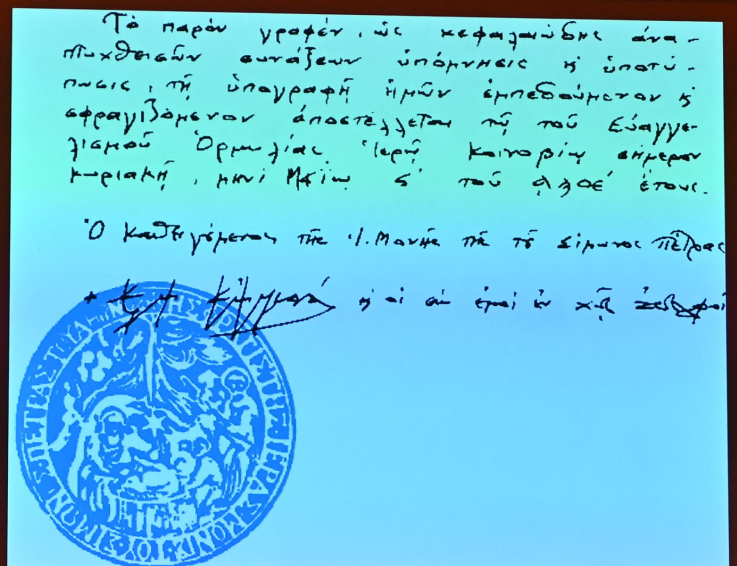 Τὸ παρὸν γραφέν, ὡς κεφαλαιώδης ἀνα-
πτυχθεισῶν συνάξεων ὑπόμνησις κ ὑποτύ-
πωσις, τῇ ὑπογραφῇ ἡμῶν ἐμπεδούμενον κ
σφραγιζόμενον ἀποστέλλεται τῷ τοῦ Εὐαγγε-
λισμοῦ Ὁρμυλίας Ἱερῷ Κοινοβίῳ σήμερον
κυριακῇ, μηνὶ Μαΐῳ τοῦ ἔτους.
Ὁ Καθηγούμενος τῆς Ἱ. Μονῆς τῆς τοῦ Σίμωνος Πέτρας
+ κ οἱ σὺν ἐμοὶ ἐν χῷ ἀδελφοί